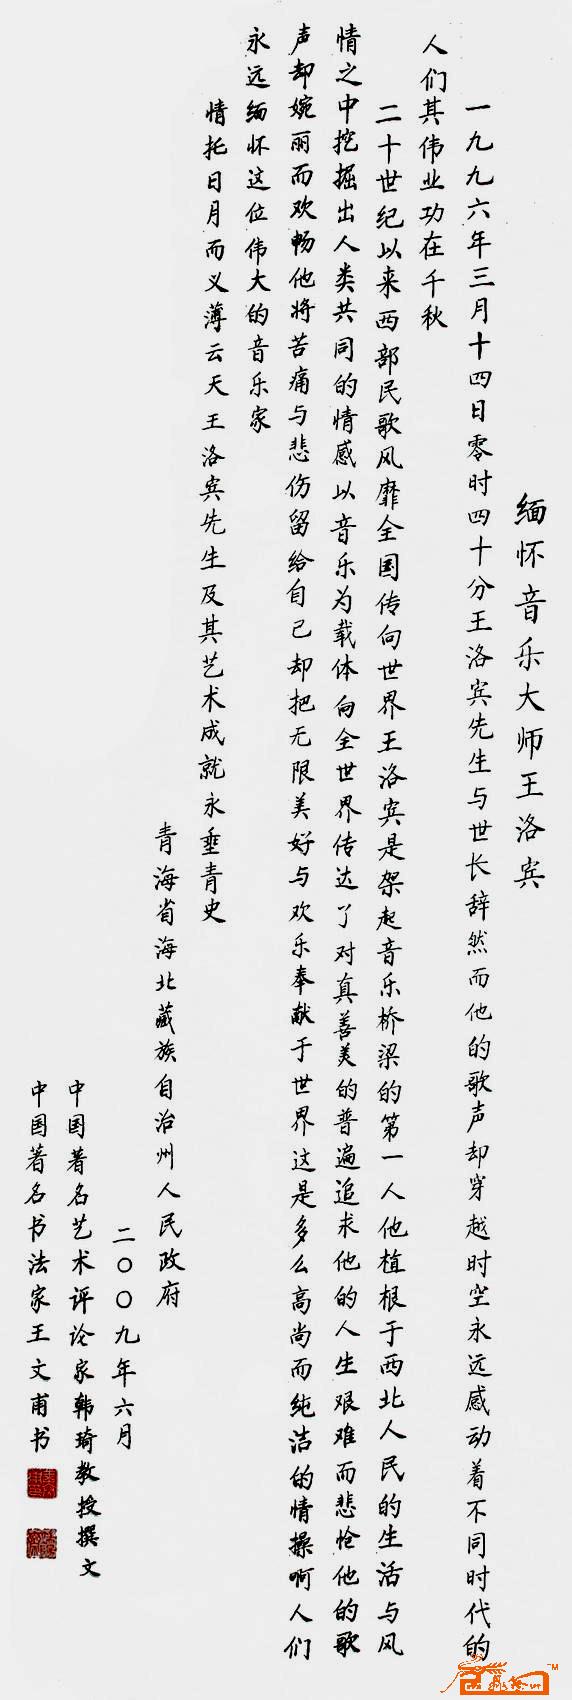 缅怀音乐大师王洛宾
一九九六年三月十四日零时四十分王洛宾先生与世长辞然而他的歌声却穿越时空永远感动着不同时代的
人们其伟业功在千秋
二十世纪以来西部民歌风靡全国传向世界王洛宾是架起音乐桥梁的第一人他植根于西北人民的生活与风
情之中挖掘出人类共同的情感以音乐为载体向全世界传达了对真善美的普遍追求他的人生艰难而悲怆他的歌
声却婉丽而欢畅他将苦痛与悲伤留给自己却把无限美好与欢乐奉献于世界这是多么高尚而纯洁的情操啊人们
永远缅怀这位伟大的音乐家
情托日月而义薄云天王洛宾先生及其艺术成就永垂青史
青海省海北藏族自治州人民政府
二〇〇九年六月
中国著名艺术评论家韩琦教授撰文
中国著名书法家王文甫书